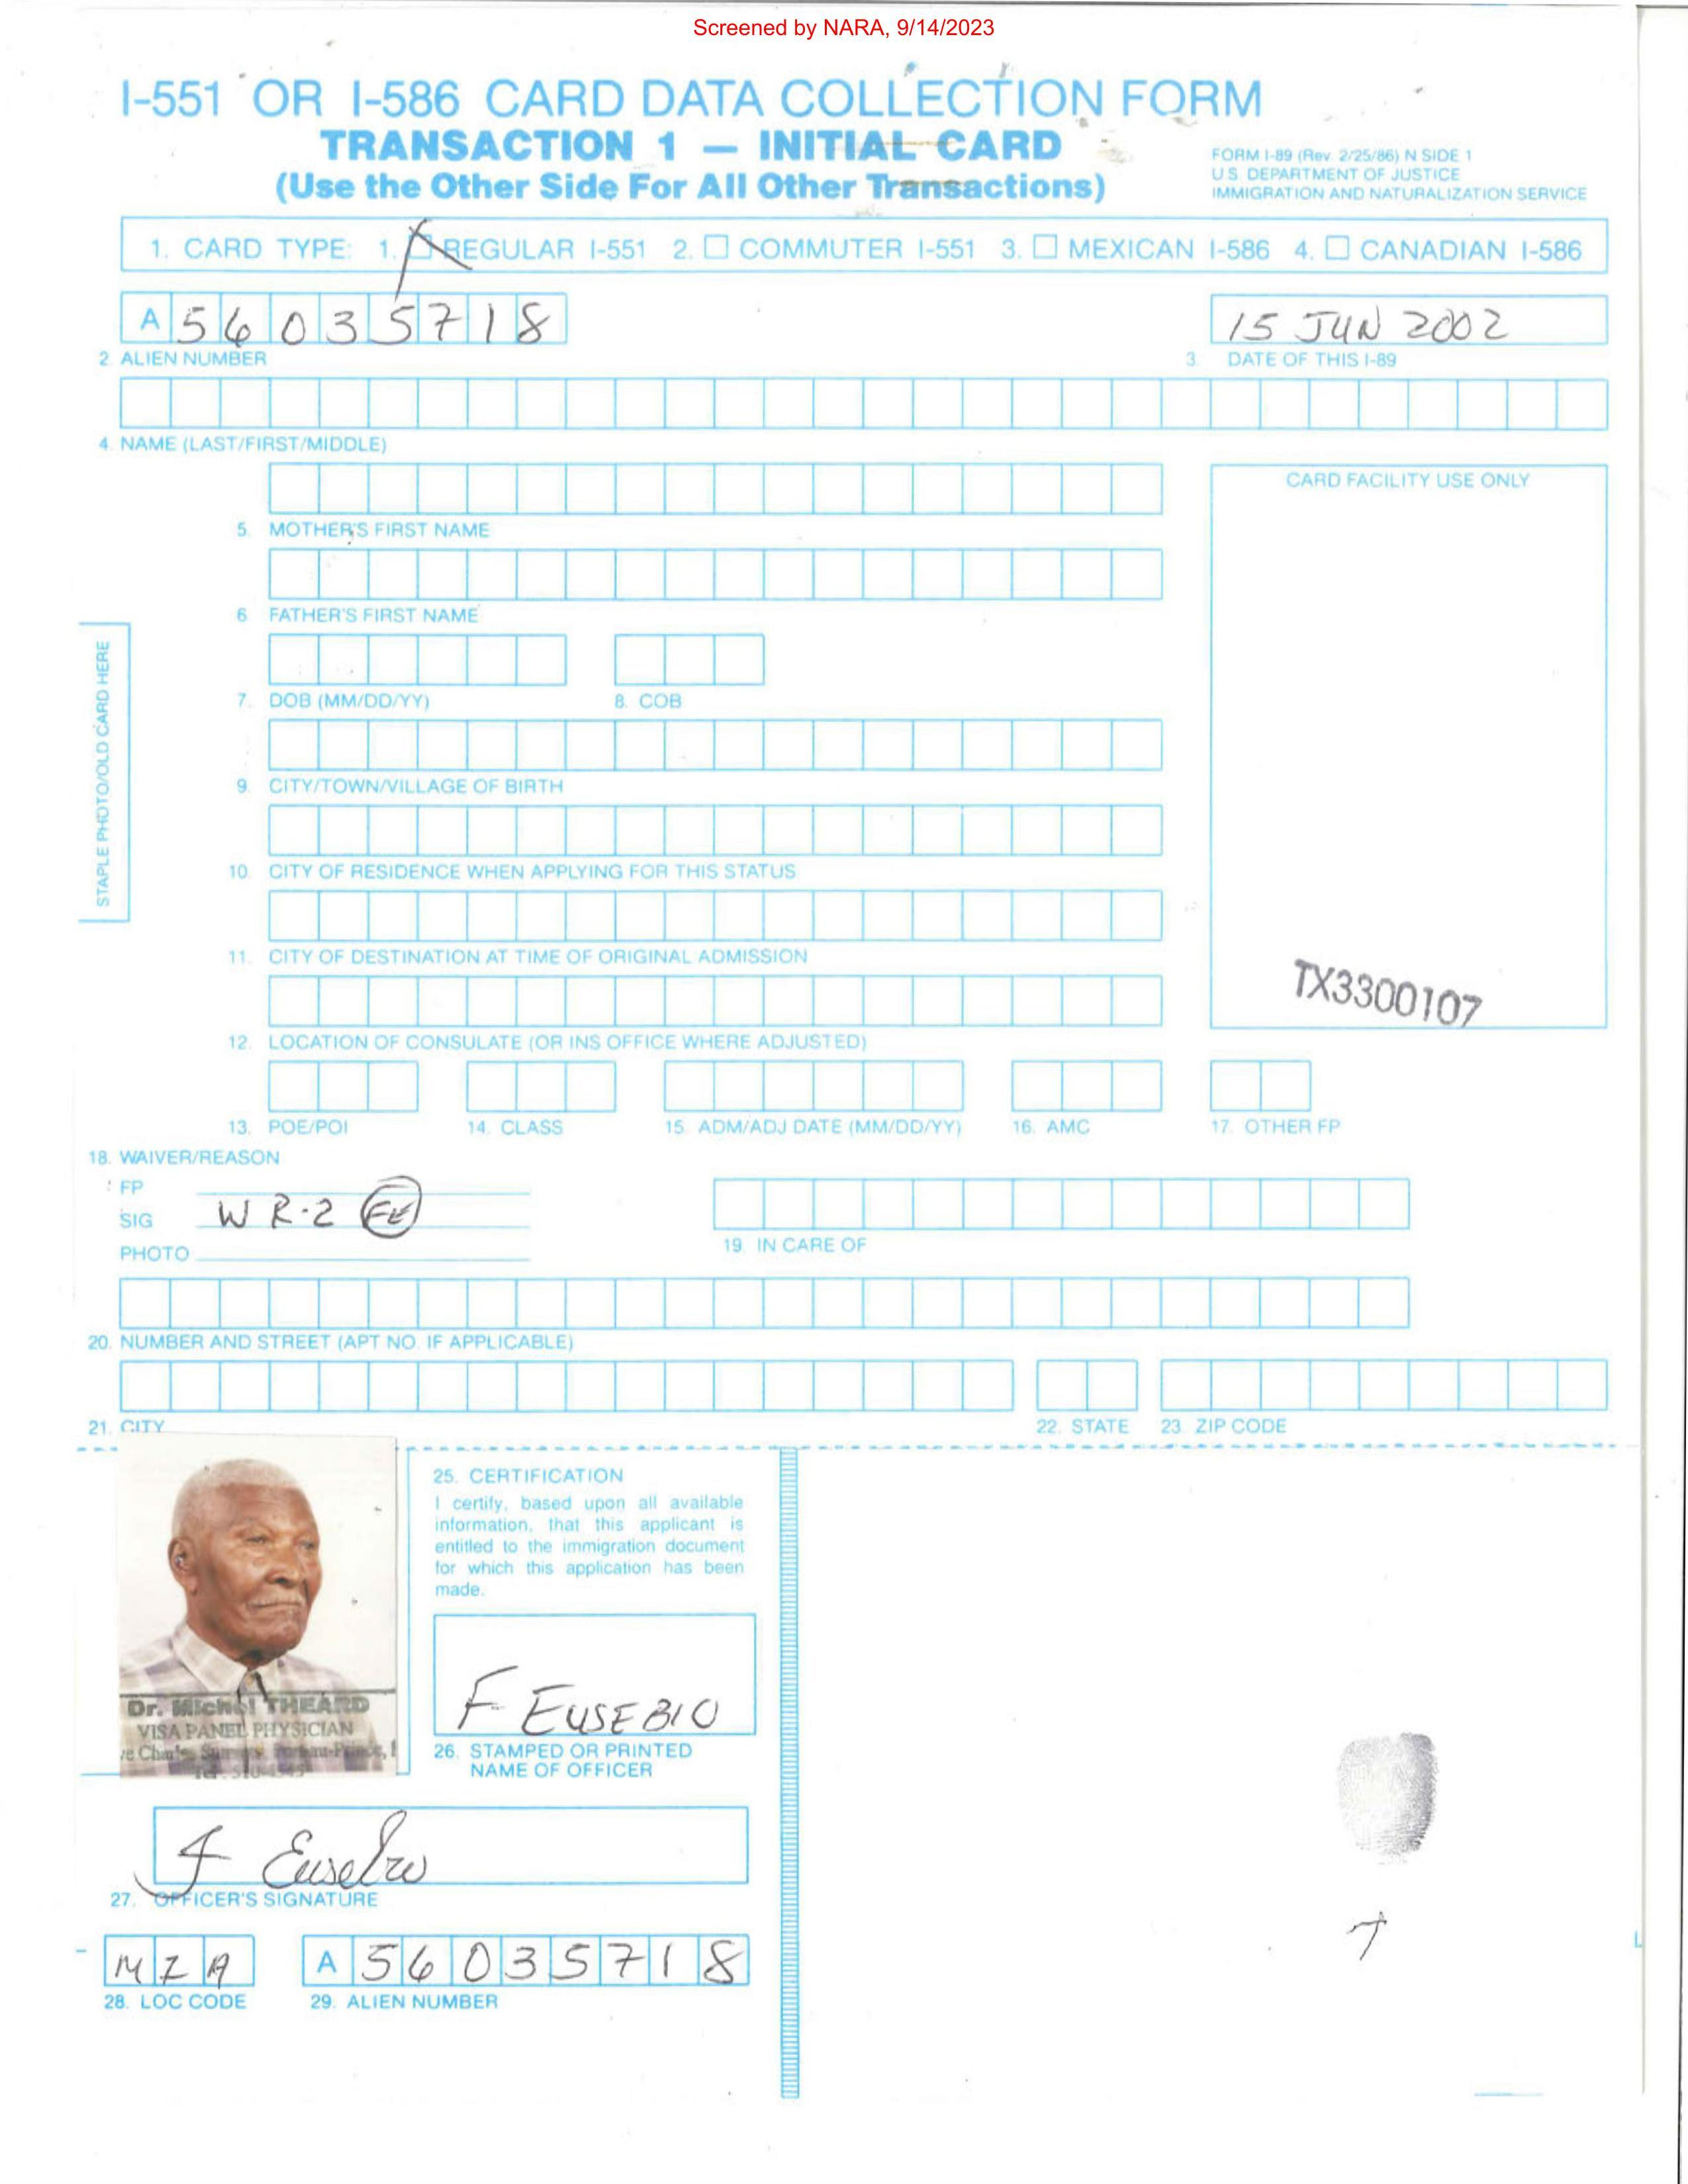 Screened by NARA, 9/14/2023
I-551 OR I-586 CARD DATA COLLECTION FORM
TRANSACTION 1 — INITIAL CARD
(Use the Other Side For All Other Transactions)
FORM I-89 (Rev. 2/25/86) N SIDE 1
U.S. DEPARTMENT OF JUSTICE
IMMIGRATION AND NATURALIZATION SERVICE
1. CARD TYPE: 1. REGULAR I-551 2. COMMUTER I-551 3. MEXICAN I-586 4. CANADIAN I-586
A 56035718
15 JUN 2002
2 ALIEN NUMBER
3. DATE OF THIS I-89
4. NAME (LAST/FIRST/MIDDLE)
CARD FACILITY USE ONLY
5. MOTHER'S FIRST NAME
6 FATHER'S FIRST NAME
STAPLE PHOTO/OLD CARD HERE
7. DOB (MM/DD/YY)
8. COB
9. CITY/TOWN/VILLAGE OF BIRTH
10. CITY OF RESIDENCE WHEN APPLYING FOR THIS STATUS
11. CITY OF DESTINATION AT TIME OF ORIGINAL ADMISSION
TX3300107
12. LOCATION OF CONSULATE (OR INS OFFICE WHERE ADJUSTED)
13. POE/POI
14. CLASS
15. ADM/ADJ DATE (MM/DD/YY)
16. AMC
17. OTHER FP
18. WAIVER/REASON
FP
SIG WR-2 FE
PHOTO
19. IN CARE OF
20. NUMBER AND STREET (APT NO. IF APPLICABLE)
21. CITY
22. STATE
23. ZIP CODE
25. CERTIFICATION
I certify, based upon all available
information, that this applicant is
entitled to the immigration document
for which this application has been
made.
Dr. Michel THEARD
VISA PANEL PHYSICIAN
F EUSEBIO
26. STAMPED OR PRINTED
NAME OF OFFICER
F Eusebio
27. OFFICER'S SIGNATURE
MIA
A 56035718
28. LOC CODE
29. ALIEN NUMBER